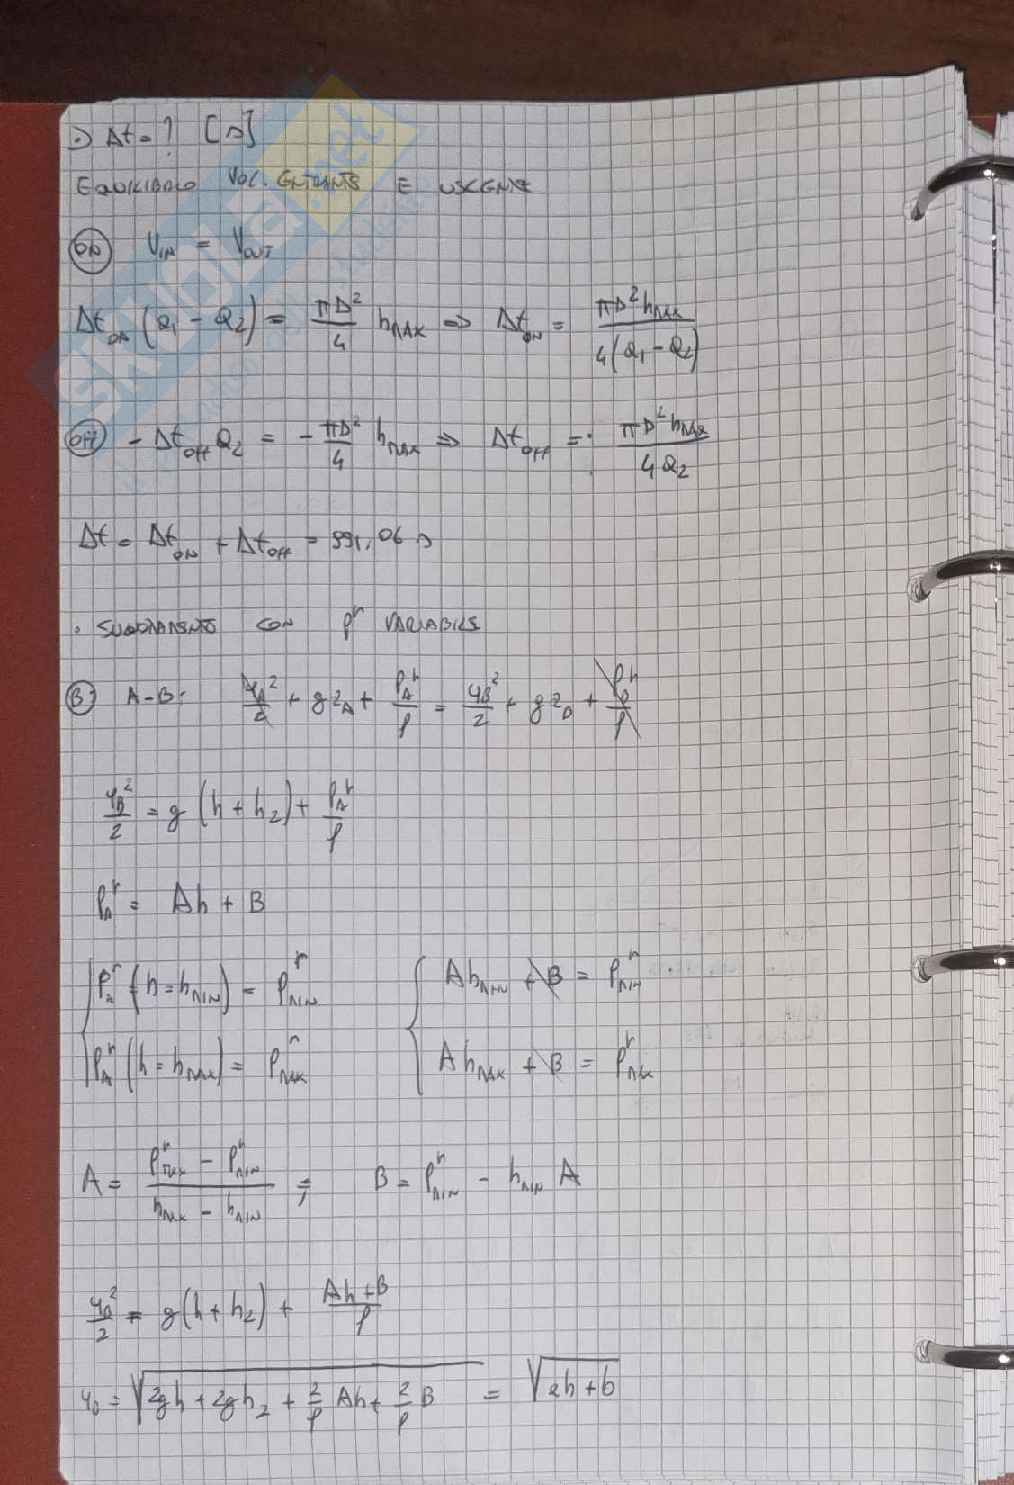 ·) Δt = ? [s]
EQUILIBRIO VOL. ENTRANTE E USCENTE
(ON) V_IN = V_OUT
Δt_ON (Q₁ - Q₂) = πD²/4 h_MAX ⇒ Δt_ON = πD² h_MAX / 4(Q₁ - Q₂)
(Off) - Δt_off Q₂ = - πD²/4 h_MAX ⇒ Δt_off = πD² h_MAX / 4Q₂
Δt = Δt_ON + Δt_off = 991,06 s
· SVUOTAMENTO CON p^r VARIABILE
(B) A-B: u_A²/2 + g z_A + p_A^r/ρ = u_B²/2 + g z_B + p_B^r/ρ
u_B²/2 = g (h + h₂) + p_A^r/ρ
p_A^r = Ah + B
{ p_A^r (h = h_MIN) = p_MIN^r { A h_MIN + B = p_MIN^r
{ p_A^r (h = h_MAX) = p_MAX^r { A h_MAX + B = p_MAX^r
A = (p_MAX^r - p_MIN^r) / (h_MAX - h_MIN) ; B = p_MIN^r - h_MIN A
u_B²/2 = g(h + h₂) + (Ah + B)/ρ
u_B = √(2gh + 2gh₂ + 2/ρ Ah + 2/ρ B) = √(ah + b)
SKUOLA.net